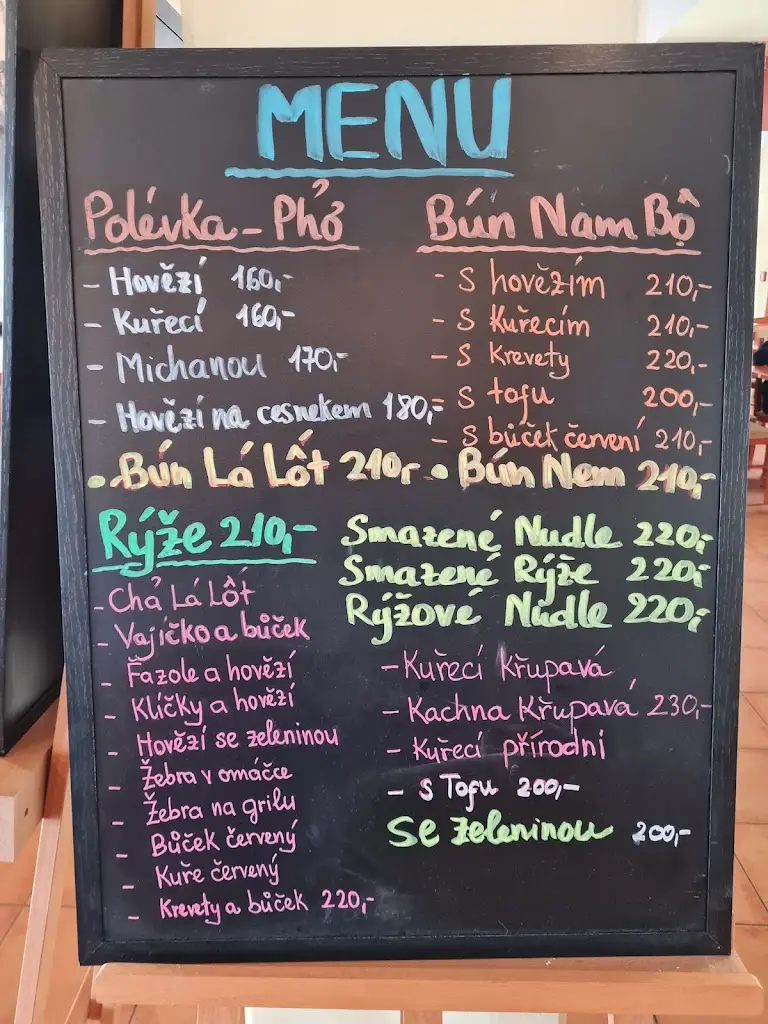 MENU
Polévka - Phở
- Hovězí 160,-
- Kuřecí 160,-
- Michanou 170,-
- Hovězí na cesnekem 180,-
Bún Nam Bộ
- S hovězím 210,-
- S Kuřecím 210,-
- S Krevety 220,-
- S tofu 200,-
- S bůček červení 210,-
• Bún Lá Lốt 210,- • Bún Nem 210,-
Rýže 210,-
- Chả Lá Lốt
- Vajíčko a bůček
- Fazole a hovězí
- Klíčky a hovězí
- Hovězí se zeleninou
- Žebra v omáčce
- Žebra na grilu
- Bůček červený
- Kuře červený
- Krevety a bůček 220,-
Smazené Nudle 220,-
Smazené Rýže 220,-
Rýžové Nudle 220,-
- Kuřecí Křupavá
- Kachna Křupavá 230,-
- Kuřecí přírodni
- S Tofu 200,-
Se zeleninou 200,-